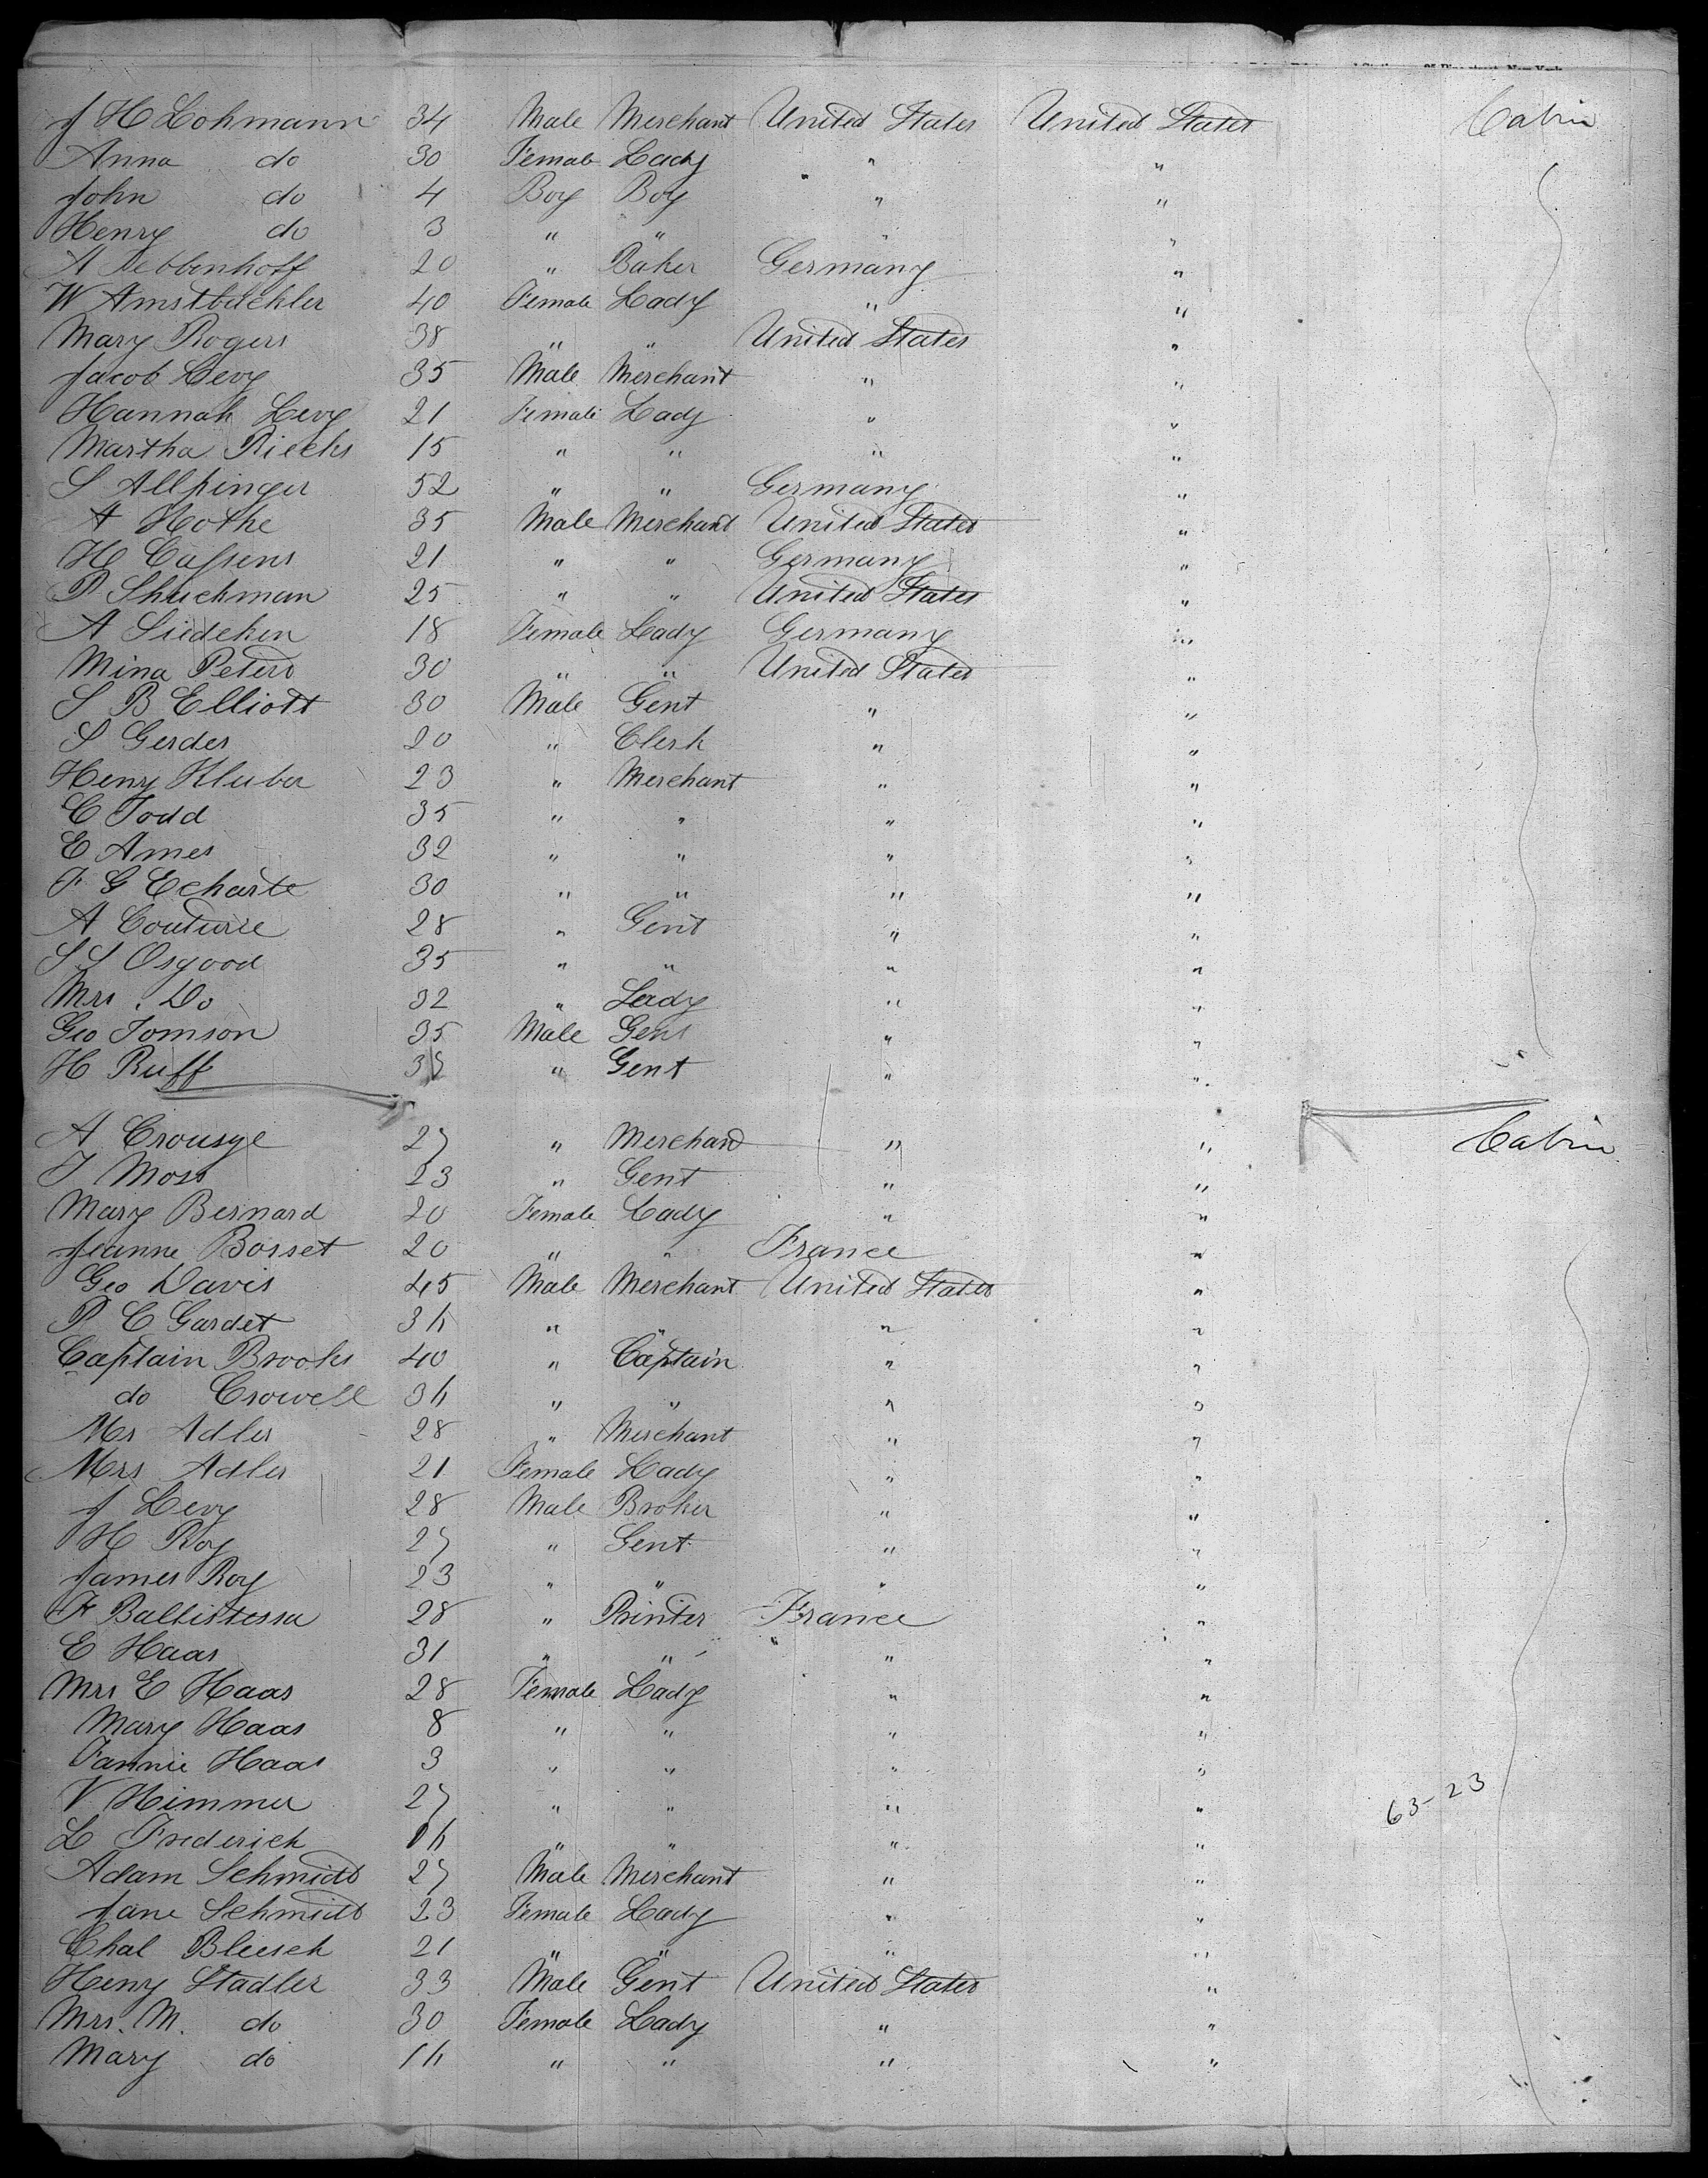 J H Lohmann 34 Male Merchant United States United States Cabin
Anna do 30 Female Lady " "
John do 4 Boy Boy " "
Henry do 3 " " " "
A Tebbenhoff 20 " Baker Germany "
W Amstbuchler 40 Female Lady " "
Mary Rogers 38 " " United States "
Jacob Levy 35 Male Merchant " "
Hannah Levy 21 Female Lady " "
Martha Riecks 15 " " " "
S Allpinger 52 " " Germany "
A Hothe 35 Male Merchant United States "
H Cassens 21 " " Germany "
P Shuchman 25 " " United States "
A Siedeken 18 Female Lady Germany "
Mina Peters 30 " " United States "
S B Elliott 30 Male Gent " "
S Gerdes 20 " Clerk " "
Heny Kluber 23 " Merchant " "
C Todd 35 " " " "
E Ames 32 " " " "
F G Echarte 30 " " " "
A Couturie 28 " Gent " "
S S Osgood 35 " " " "
Mrs. Do 32 " Lady " "
Geo Tomson 35 Male Gent " "
H Ruff " Gent " "
A Crousge 27 " Merchand " " Cabin
T Moss 23 " Gent " "
Mary Bernard 20 Female Lady " "
Jeanne Bosset 20 " " France "
Geo Davis 45 Male Merchant United States "
P C Gardet 36 " " " "
Captain Brooks 40 " Captain " "
do Crowell 36 " " " "
Mr Adler 28 " Merchant " "
Mrs Adler 21 Female Lady " "
J Levy 28 Male Broker " "
H Roy 27 " Gent " "
James Roy 23 " " " "
F Baltistessa 28 " Printer France "
E Haas 31 " " " "
Mrs E Haas 28 Female Lady " "
Mary Haas 8 " " " "
Fannie Haas 3 " " " "
V Himmer 27 " " " " 63-23
L Frederick 16 " " " "
Adam Schmidt 27 Male Merchant " "
Jane Schmidt 23 Female Lady " "
Chal Bleesch 21 " " " "
Heny Stadler 33 Male Gent United States "
Mrs. M. do 30 Female Lady " "
Mary do 16 " " " "